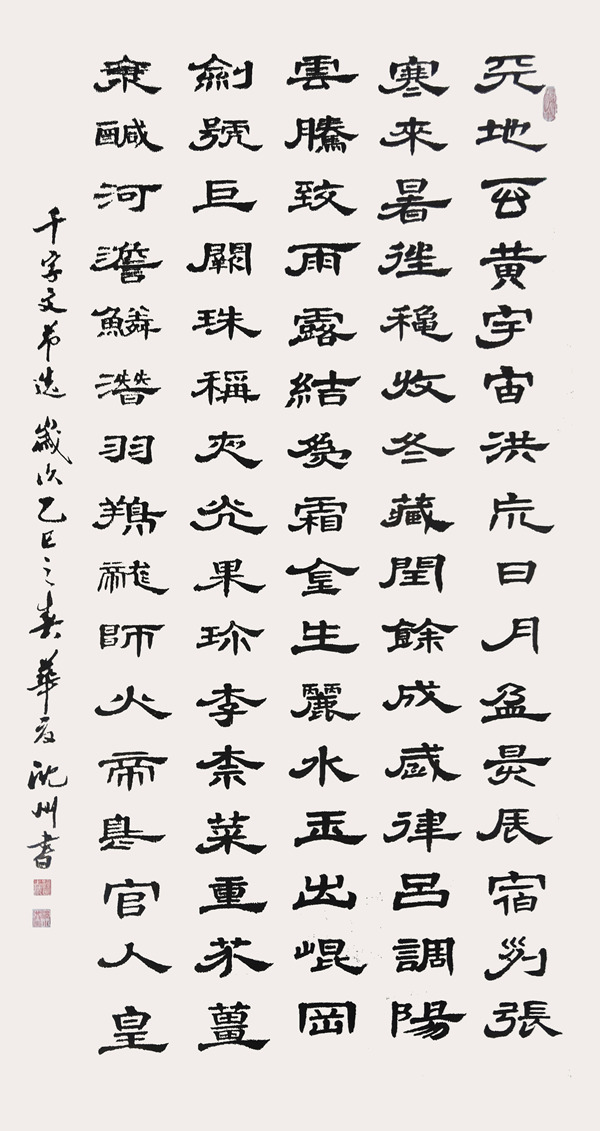 天地玄黄宇宙洪荒日月盈昃辰宿列張
寒來暑往穐收冬藏閏餘成歲律呂調陽
雲騰致雨露結爲霜金生麗水玉出崐岡
劍號巨闕珠稱夜光果珍李柰菜重芥薑
海鹹河澹鱗潛羽翔龍師火帝鳥官人皇
千字文節選歲次乙巳之春華州書